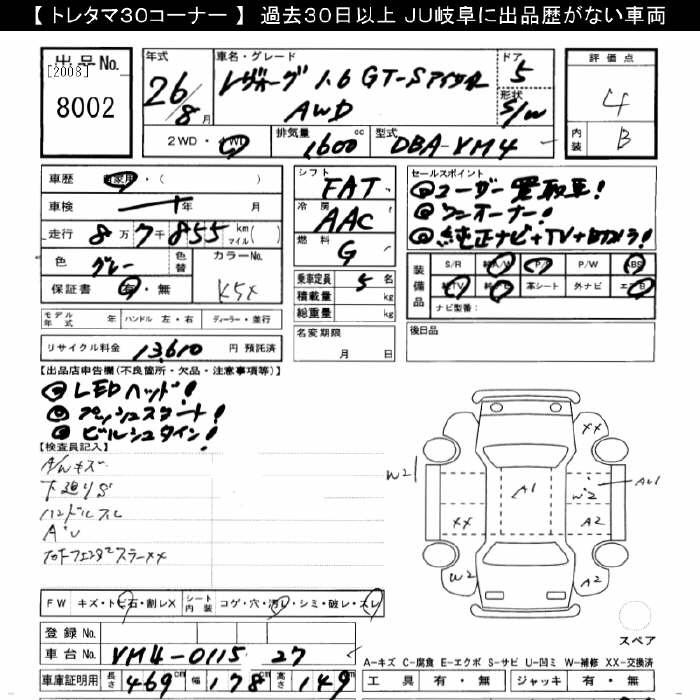 【 トレタマ30コーナー 】 過去30日以上 JU岐阜に出品歴がない車両
出品No.
[2008]
8002
年式
26/8月
車名・グレード
レヴォーグ 1.6 GT-Sアイサイト
AWD
ドア
5
形状
S/W
2WD・4WD
排気量
1600 cc
型式
DBA-VM4
評価点
4
内装
B
車歴 自家用・( )
車検 年 月
走行 8万7千855 km マイル( )
色 グレー
色替
カラーNo.
K5X
保証書 有・無
シフト
FAT
冷房
AAC
燃料
G
乗車定員 5 名
積載量 kg
総重量 kg
名変期限
月 日
セールスポイント
◎ユーザー買取車!
◎ワンオーナー!
◎純正ナビ+TV+Bカメラ!
装備品
S/R 純A/W P/S P/W ABS
純TV 純ナビ 革シート 外ナビ エアB
ナビ型番:
後日品
モデル年式 年 ハンドル 左・右 ディーラー・並行
リサイクル料金 13,610 円 預託済
【出品店申告欄(不良箇所・欠品・注意事項等)】
◎LEDヘッド!
◎プッシュスタート!
◎ビルシュタイン!
【検査員記入】
A/Wキズ
下廻りS
ハンドルスレ
A・U
W2
XX
A1
W2
AU1
XX
A2
W2
A2
FW キズ・トビ石・割レX
シート内装 コゲ・穴・汚レ・シミ・破レ・スレ
登録 No.
車台 No. VM4-011527
車庫証明用 長さ 469cm 幅 178cm 高さ 149cm
スペア
A-キズ C-腐食 E-エクボ S-サビ U-凹ミ W-補修 XX-交換済
工具 有・無 ジャッキ 有・無